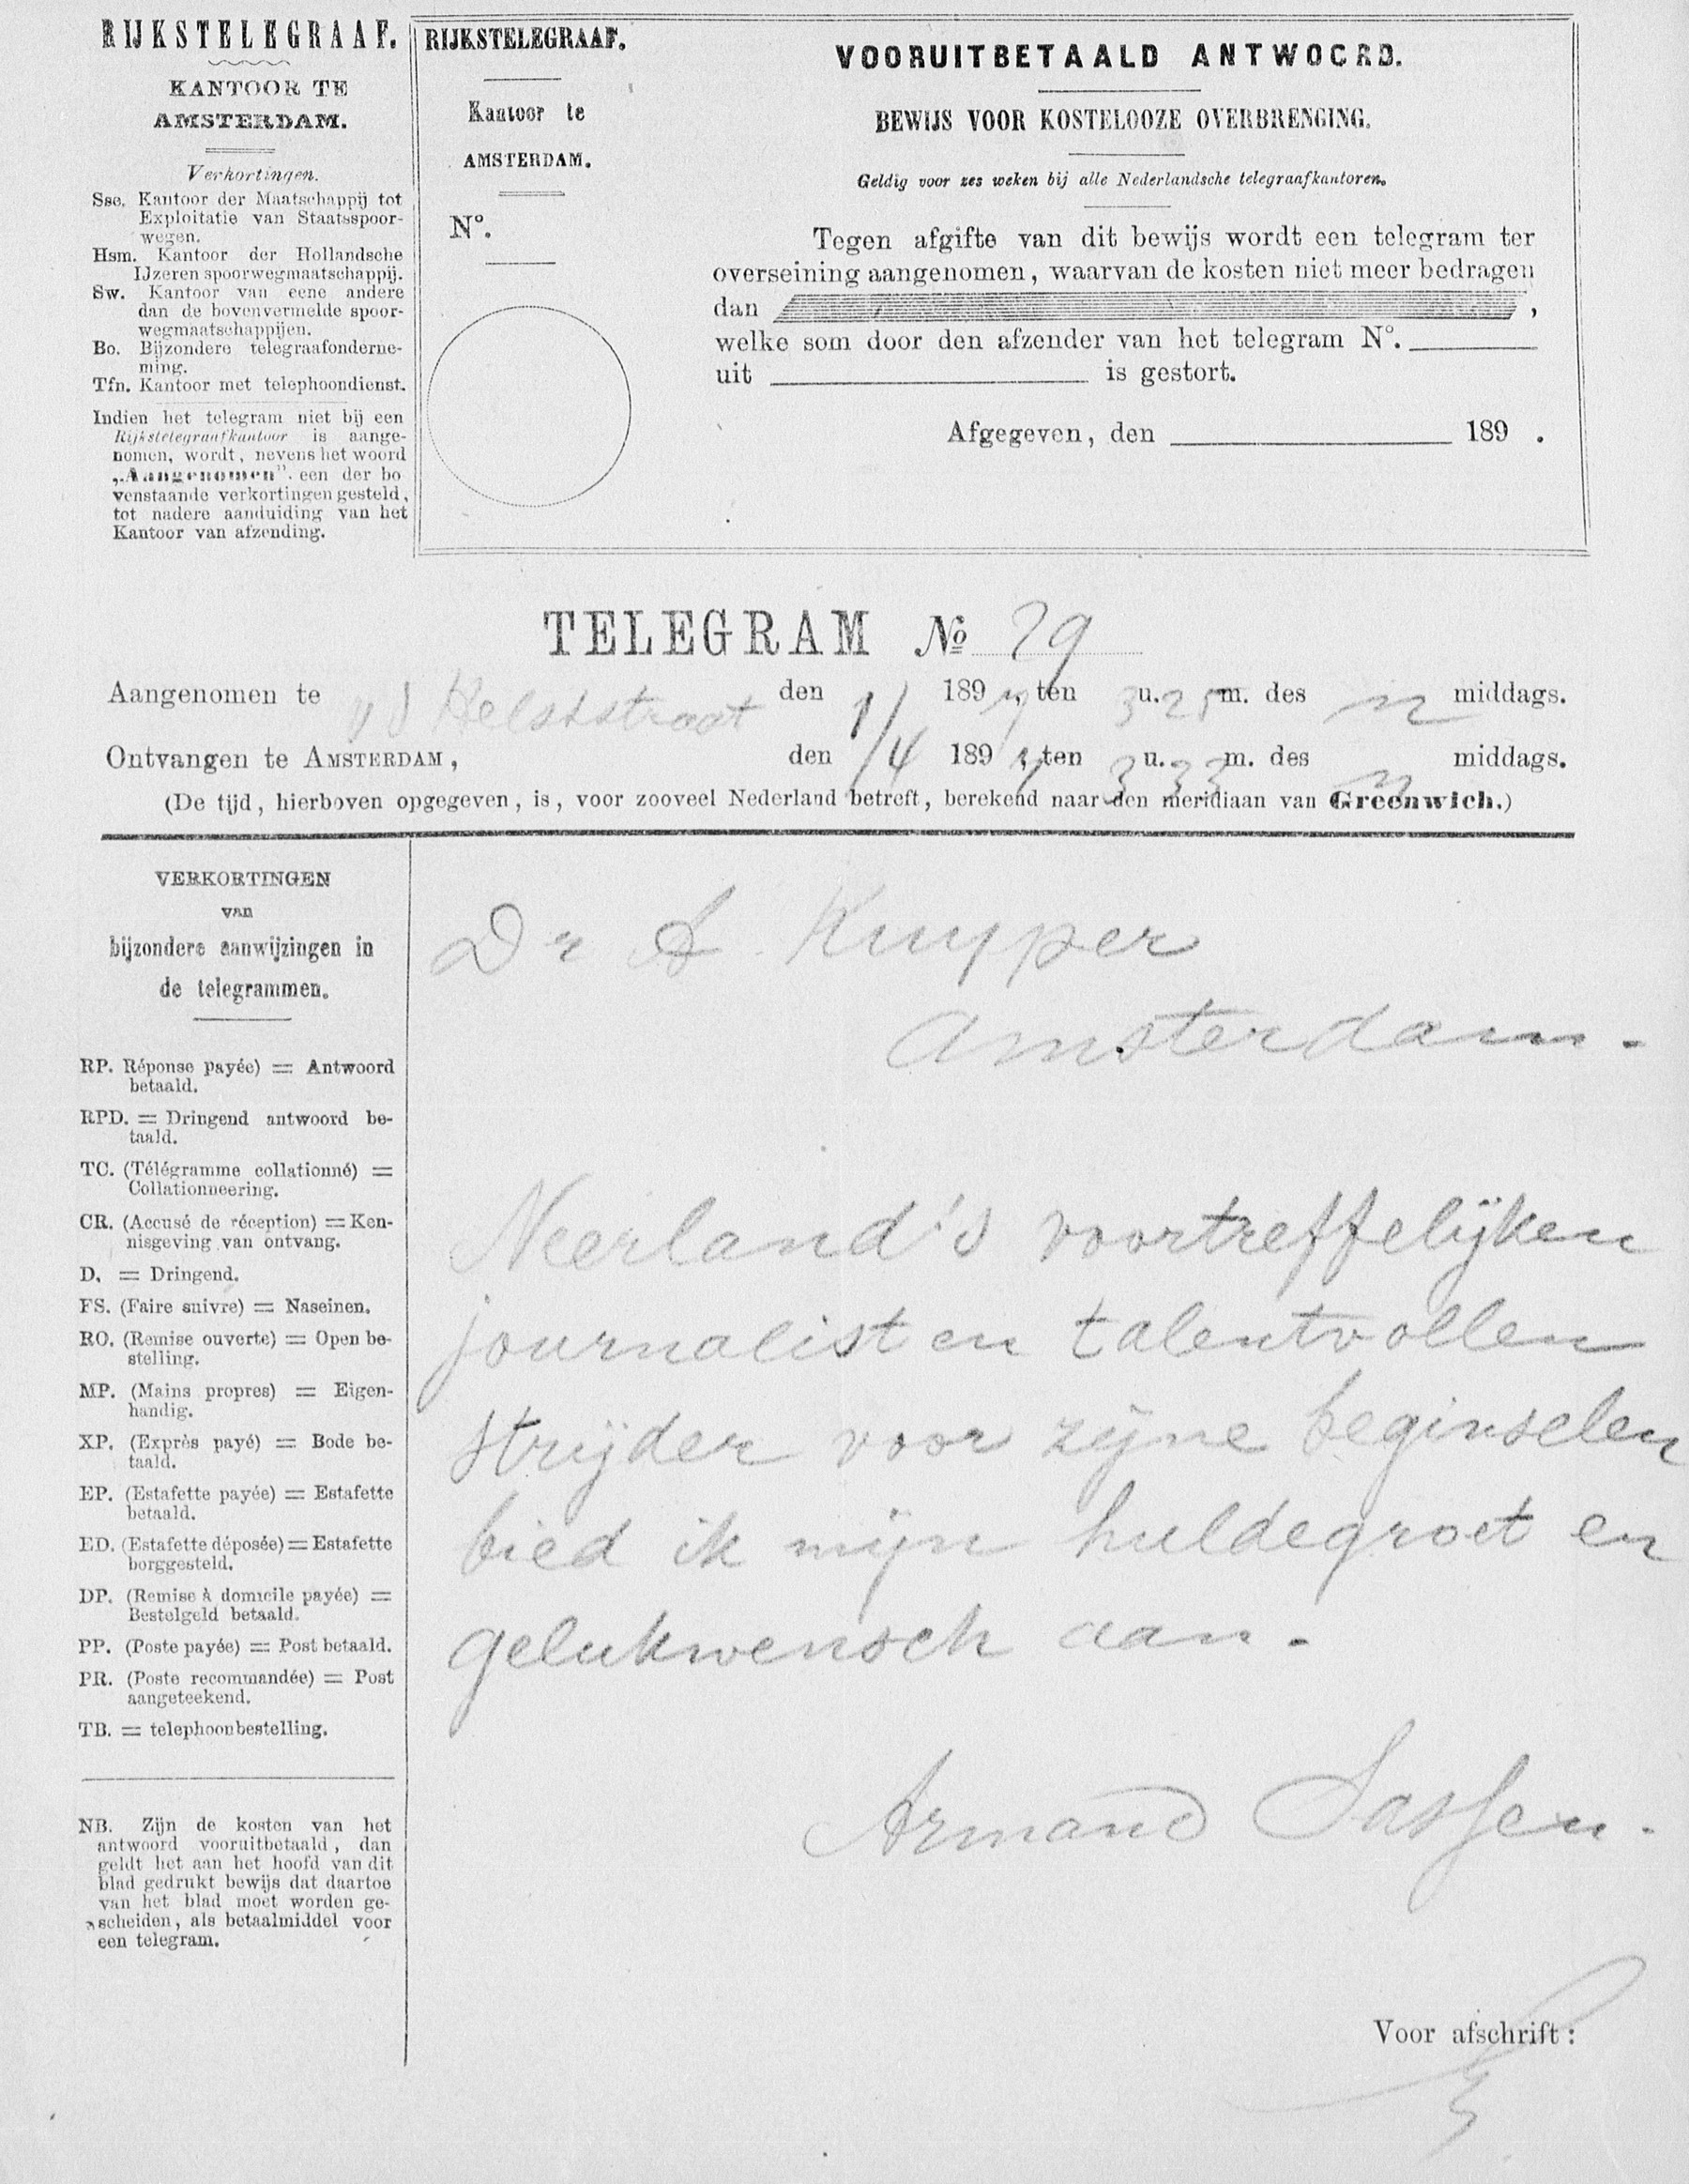 RIJKSTELEGRAAF.
KANTOOR TE
AMSTERDAM.
Verkortingen.
Sse. Kantoor der Maatschappij tot
Exploitatie van Staatsspoor-
wegen.
Hsm. Kantoor der Hollandsche
IJzeren spoorwegmaatschappij.
Sw. Kantoor van eene andere
dan de bovenvermelde spoor-
wegmaatschappijen.
Bo. Bijzondere telegraafonderne-
ming.
Tfn. Kantoor met telephoondienst.
Indien het telegram niet bij een
Rijkstelegraafkantoor is aange-
nomen, wordt, nevens het woord
„Aangenomen". een der bo
venstaande verkortingen gesteld,
tot nadere aanduiding van het
Kantoor van afzending.
RIJKSTELEGRAAF.
Kantoor te
AMSTERDAM.
No.
VOORUITBETAALD ANTWOORD.
BEWIJS VOOR KOSTELOOZE OVERBRENGING.
Geldig voor zes weken bij alle Nederlandsche telegraafkantoren.
Tegen afgifte van dit bewijs wordt een telegram ter
overseining aangenomen, waarvan de kosten niet meer bedragen
dan ,
welke som door den afzender van het telegram No.
uit is gestort.
Afgegeven, den 189 .
TELEGRAM No 29
Aangenomen te vd Helststraat den 1/ 1897, ten 3 u. 25 m. des n middags.
Ontvangen te AMSTERDAM, den 1/4 189 , ten 3 u. 33 m. des n middags.
(De tijd, hierboven opgegeven, is, voor zooveel Nederland betreft, berekend naar den meridiaan van Greenwich.)
VERKORTINGEN
van
bijzondere aanwijzingen in
de telegrammen.
RP. Réponse payée) = Antwoord
betaald.
RPD. = Dringend antwoord be-
taald.
TC. (Télégramme collationné) =
Collationneering.
CR. (Accusé de réception) = Ken-
nisgeving van ontvang.
D. = Dringend.
FS. (Faire suivre) = Naseinen.
RO. (Remise ouverte) = Open be-
stelling.
MP. (Mains propres) = Eigen-
handig.
XP. (Exprès payé) = Bode be-
taald.
EP. (Estafette payée) = Estafette
betaald.
ED. (Estafette déposée) = Estafette
borggesteld.
DP. (Remise à domicile payée) =
Bestelgeld betaald.
PP. (Poste payée) = Post betaald.
PR. (Poste recommandée) = Post
aangeteekend.
TB. = telephoonbestelling.
NB. Zijn de kosten van het
antwoord vooruitbetaald, dan
geldt het aan het hoofd van dit
blad gedrukt bewijs dat daartoe
van het blad moet worden ge-
scheiden, als betaalmiddel voor
een telegram.
Dr A. Kuyper
Amsterdam.
Neerland's voortreffelijken
journalist en talentvollen
strijder voor zijne beginselen
bied ik mijn huldegroet en
gelukwensch aan.
Armand Sassen.
Voor afschrift: